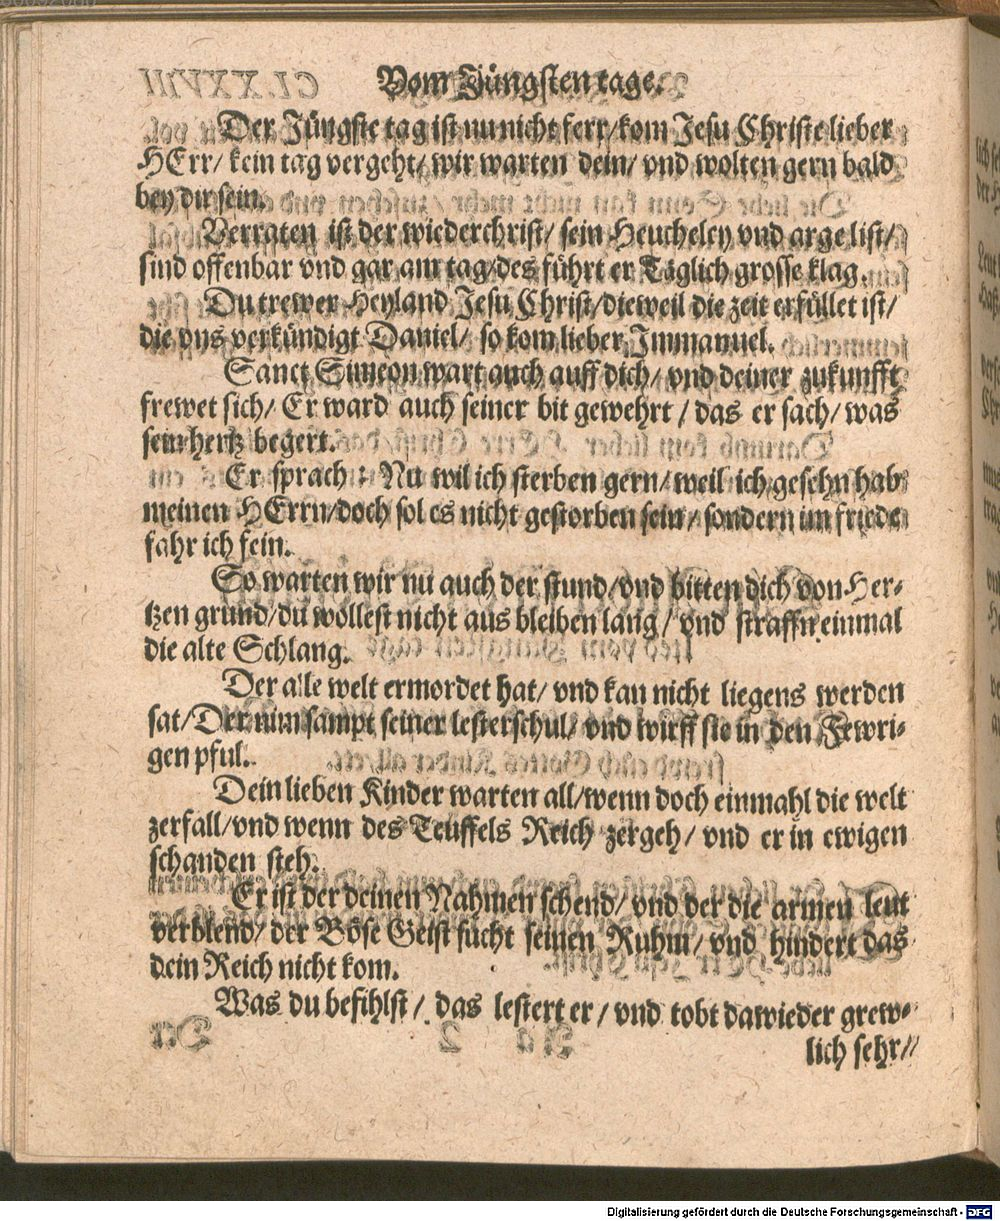 Vom Jüngsten tage.
Der Jüngste tag ist nu nicht ferr/ kom Jesu Christe lieber
HErr/ kein tag vergeht/ wir warten dein/ vnd wolten gern bald
bey dir sein.
Verraten ist der wiederchrist/ sein Heucheley vnd arge list/
sind offenbar vnd gar am tag/ des führt er Täglich grosse klag.
Du trewer Heyland Jesu Christ/ dieweil die zeit erfüllet ist/
die vns verkündigt Daniel/ so kom lieber Immanuel.
Sanct Simeon wart auch auff dich/ vnd deiner zukunfft
frewet sich/ Er ward auch seiner bit gewehrt/ das er sach/ was
sein hertz begert.
Er sprach: Nu wil ich sterben gern/ weil ich gesehn hab
meinen HErrn/ doch sol es nicht gestorben sein/ sondern im friede
fahr ich fein.
So warten wir nu auch der stund/ vnd bitten dich von Her-
tzen grund/ du wollest nicht aus bleiben lang/ vnd straffn einmal
die alte Schlang.
Der alle welt ermordet hat/ vnd kan nicht liegens werden
sat/ Der nim sampt seiner lesterschul/ vnd wirff sie in den Fewri-
gen pful.
Dein lieben Kinder warten all/ wenn doch einmahl die welt
zerfall/ vnd wenn des Teuffels Reich zergeh/ vnd er in ewigen
schanden steh.
Er ist der deinen Nahmen schend/ vnd der die armen leut
verblend/ der Böse Geist sucht seinen Ruhm/ vnd hindert das
dein Reich nicht kom.
Was du befihlst/ das lestert er/ vnd tobt dawieder grew-
lich sehr//
Digitalisierung gefördert durch die Deutsche Forschungsgemeinschaft - DFG